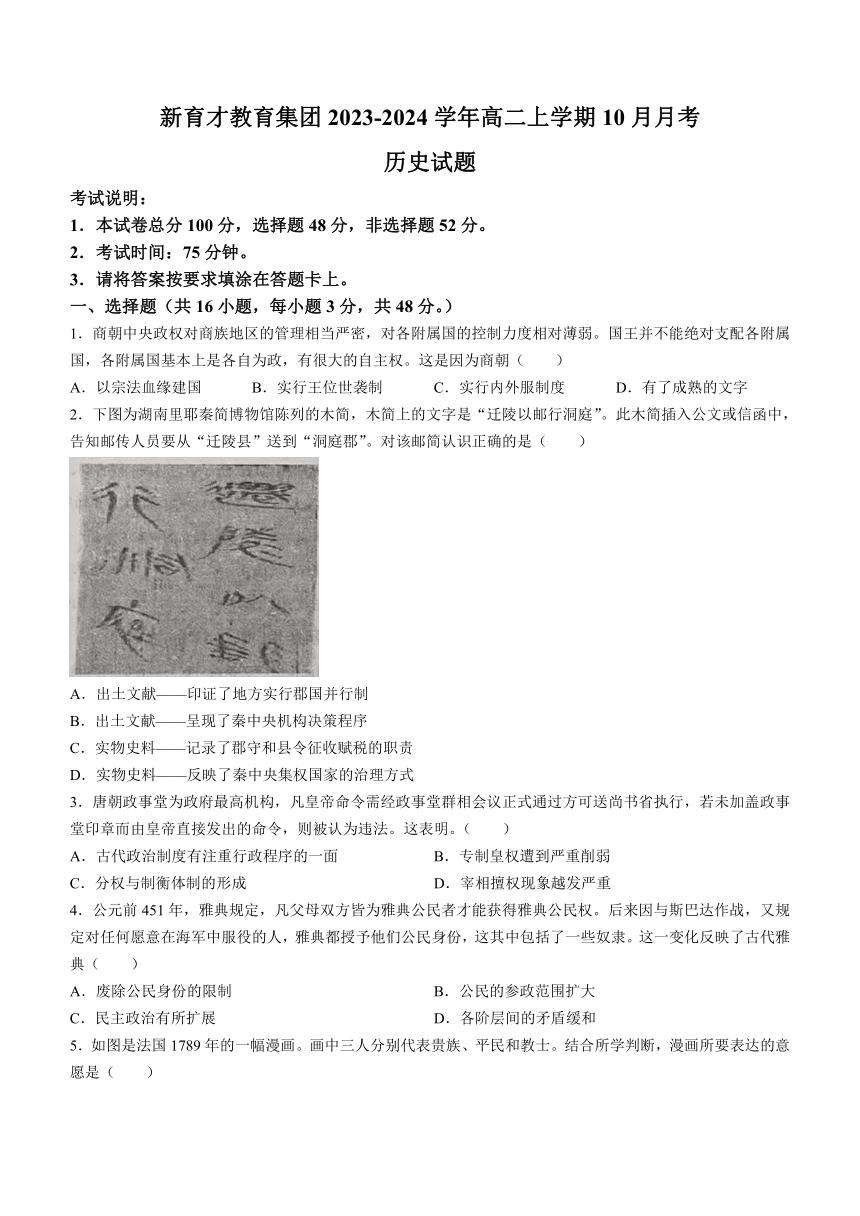 新育才教育集团 2023-2024 学年高二上学期 10 月月考
历史试题
考试说明：
1．本试卷总分 100 分，选择题 48 分，非选择题 52 分。
2．考试时间：75 分钟。
3．请将答案按要求填涂在答题卡上。
一、选择题（共 16 小题，每小题 3 分，共 48 分。）
1．商朝中央政权对商族地区的管理相当严密，对各附属国的控制力度相对薄弱。国王并不能绝对支配各附属
国，各附属国基本上是各自为政，有很大的自主权。这是因为商朝（　　）
A．以宗法血缘建国 B．实行王位世袭制 C．实行内外服制度 D．有了成熟的文字
2．下图为湖南里耶秦简博物馆陈列的木简，木简上的文字是“迁陵以邮行洞庭”。此木简插入公文或信函中，
告知邮传人员要从“迁陵县”送到“洞庭郡”。对该邮简认识正确的是（　　）
A．出土文献——印证了地方实行郡国并行制
B．出土文献——呈现了秦中央机构决策程序
C．实物史料——记录了郡守和县令征收赋税的职责
D．实物史料——反映了秦中央集权国家的治理方式
3．唐朝政事堂为政府最高机构，凡皇帝命令需经政事堂群相会议正式通过方可送尚书省执行，若未加盖政事
堂印章而由皇帝直接发出的命令，则被认为违法。这表明。（　　）
A．古代政治制度有注重行政程序的一面 B．专制皇权遭到严重削弱
C．分权与制衡体制的形成 D．宰相擅权现象越发严重
4．公元前 451 年，雅典规定，凡父母双方皆为雅典公民者才能获得雅典公民权。后来因与斯巴达作战，又规
定对任何愿意在海军中服役的人，雅典都授予他们公民身份，这其中包括了一些奴隶。这一变化反映了古代雅
典（　　）
A．废除公民身份的限制 B．公民的参政范围扩大
C．民主政治有所扩展 D．各阶层间的矛盾缓和
5．如图是法国 1789 年的一幅漫画。画中三人分别代表贵族、平民和教士。结合所学判断，漫画所要表达的意
愿是（　　）